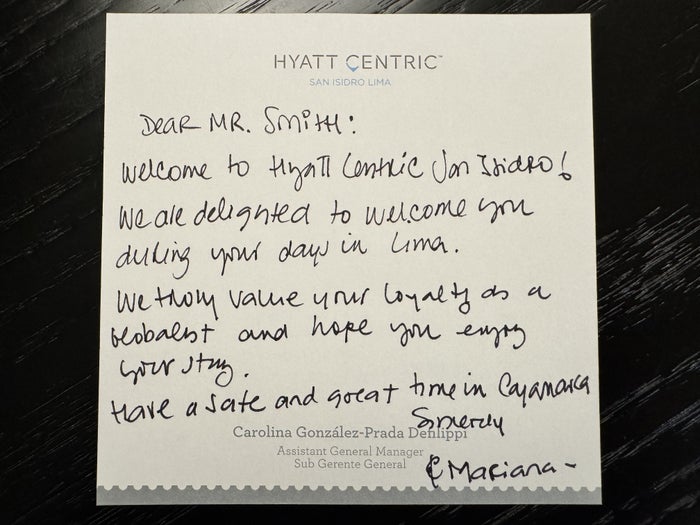 HYATT CENTRIC™
SAN ISIDRO LIMA
Dear Mr. Smith:
Welcome to Hyatt Centric San Isidro!
We are delighted to welcome you
during your days in Lima.
We truly value your loyalty as a
Globalist and hope you enjoy
your stay.
Have a safe and great time in Cajamarca
Sincerely
Carolina González-Prada Denlippi
Assistant General Manager
Sub Gerente General
& Mariana -